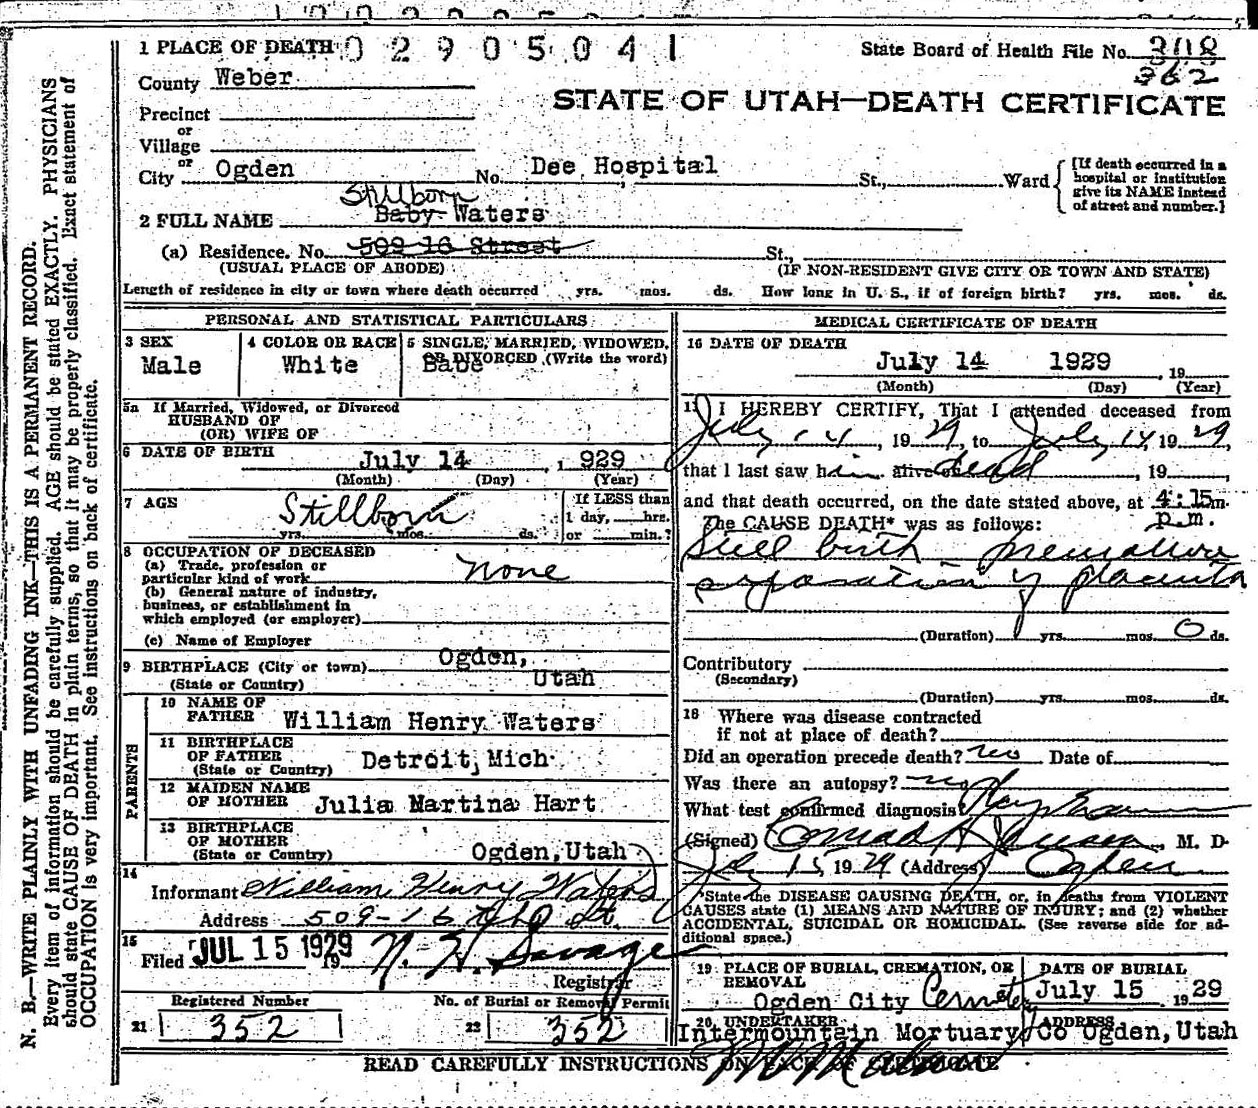 1 PLACE OF DEATH 0 2 9 0 5 0 4 1
State Board of Health File No. 3118
362
County Weber
STATE OF UTAH—DEATH CERTIFICATE
Precinct
or
Village
or
City Ogden No. Dee Hospital St., Ward
[If death occurred in a
hospital or institution
give its NAME instead
of street and number.]
Stillborn
2 FULL NAME Baby Waters
(a) Residence. No. 509 16 Street St.,
(USUAL PLACE OF ABODE) (IF NON-RESIDENT GIVE CITY OR TOWN AND STATE)
Length of residence in city or town where death occurred yrs. mos. ds. How long in U. S., if of foreign birth? yrs. mos. ds.
PERSONAL AND STATISTICAL PARTICULARS
3 SEX
Male
4 COLOR OR RACE
White
5 SINGLE, MARRIED, WIDOWED,
OR DIVORCED (Write the word)
Babe
5a If Married, Widowed, or Divorced
HUSBAND OF
(OR) WIFE OF
6 DATE OF BIRTH
July 14 , 929
(Month) (Day) (Year)
7 AGE
Stillborn
yrs. mos. ds.
If LESS than
1 day, hrs.
or min.?
8 OCCUPATION OF DECEASED
(a) Trade, profession or
particular kind of work none
(b) General nature of industry,
business, or establishment in
which employed (or employer)
(c) Name of Employer
9 BIRTHPLACE (City or town) Ogden,
(State or Country) Utah
PARENTS
10 NAME OF
FATHER William Henry Waters
11 BIRTHPLACE
OF FATHER
(State or Country) Detroit, Mich.
12 MAIDEN NAME
OF MOTHER Julia Martina Hart
13 BIRTHPLACE
OF MOTHER
(State or Country) Ogden, Utah
14
Informant William Henry Waters
Address 509-16 St.
15
Filed JUL 15 1929 19 N. H. Savage
Registrar
Registered Number
21 352
No. of Burial or Removal Permit
22 352
MEDICAL CERTIFICATE OF DEATH
16 DATE OF DEATH
July 14 1929 , 19
(Month) (Day) (Year)
17 I HEREBY CERTIFY, That I attended deceased from
July 14, 1929, to July 14, 1929
that I last saw him alive on dead , 19
and that death occurred, on the date stated above, at 4:15 m.
p.m.
The CAUSE DEATH* was as follows:
Still birth premature
separation of placenta
(Duration) yrs. mos. 0 ds.
Contributory
(Secondary)
(Duration) yrs. mos. ds.
18 Where was disease contracted
if not at place of death?
Did an operation precede death? no Date of
Was there an autopsy? no
What test confirmed diagnosis?
(Signed) Conrad H Jenson, M. D.
July 15, 1929 (Address) Ogden
*State the DISEASE CAUSING DEATH, or, in deaths from VIOLENT
CAUSES state (1) MEANS AND NATURE OF INJURY; and (2) whether
ACCIDENTAL, SUICIDAL OR HOMICIDAL. (See reverse side for ad-
ditional space.)
19 PLACE OF BURIAL, CREMATION, OR
REMOVAL
Ogden City Cemetery
DATE OF BURIAL
July 15 , 1929
20 UNDERTAKER ADDRESS
Intermountain Mortuary Co Ogden, Utah
READ CAREFULLY INSTRUCTIONS ON BACK OF CERTIFICATE
N. B.—WRITE PLAINLY WITH UNFADING INK—THIS IS A PERMANENT RECORD.
Every item of information should be carefully supplied. AGE should be stated EXACTLY. PHYSICIANS
should state CAUSE OF DEATH in plain terms, so that it may be properly classified. Exact statement of
OCCUPATION is very important. See instructions on back of certificate.